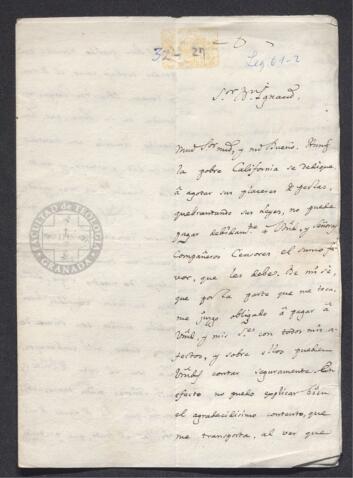 32-27
Leg 69-2
Sor Dn Ignacio.
Muy Sor mio, y mi Dueño. Aunq
la pobre California se dedique
à agotar sus placeres de perlas,
quebrantando sus leyes, no puede
pagar debidamte à Vmd, y señores
Compañeros Censores el sumo fa
vor, que les debe. De mi sè,
que por la parte que me toca,
me juzgo obligado à pagar à
Vmd, y mis Sres con todos mis a
fectos, y sobre ellos pueden
Vmds contar seguramente. En
efecto no puedo explicar bien
el agradecidisimo contento, que
me transporta, al ver que
FACULTAD de TEOLOGIA
GRANADA